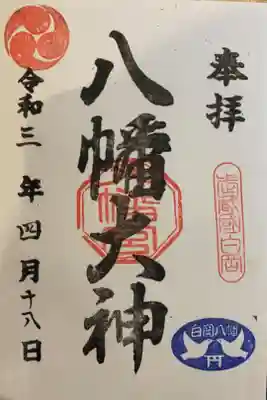 奉拝
八幡大神
令和三年四月十八日
白岡八幡